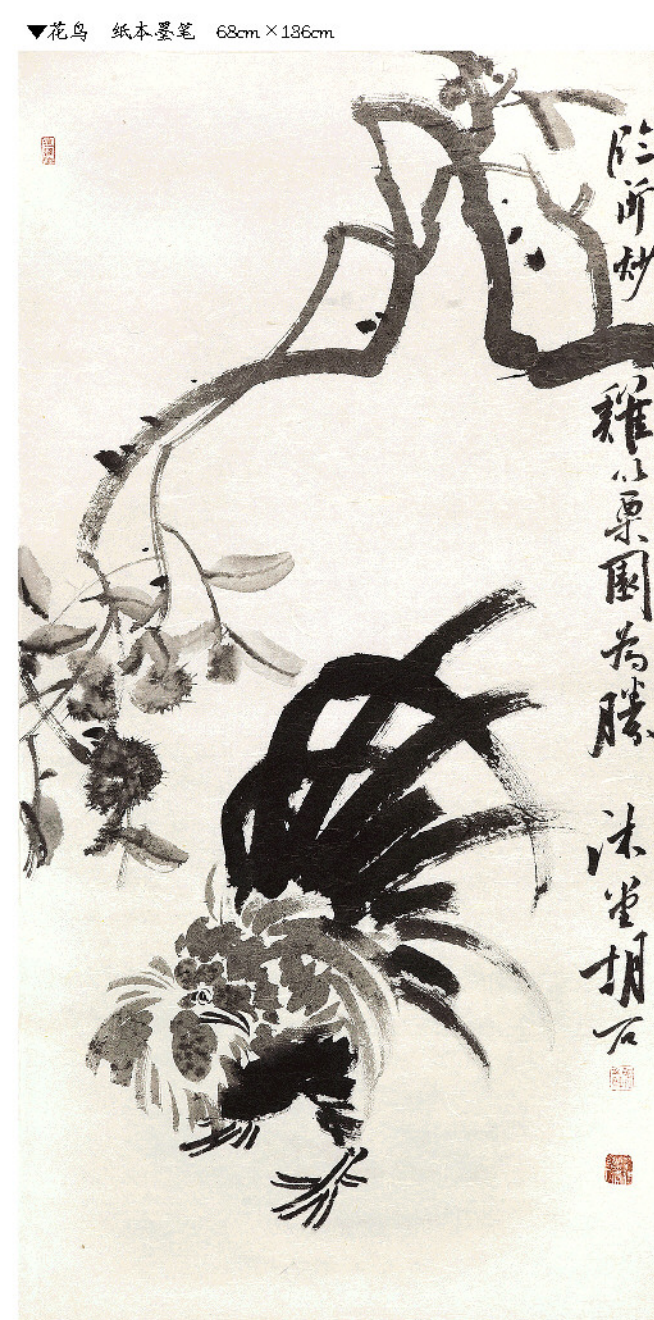 ▼花鸟 纸本墨笔 68cm×136cm
临所炒
鸡以栗园为胜
沐堂胡石